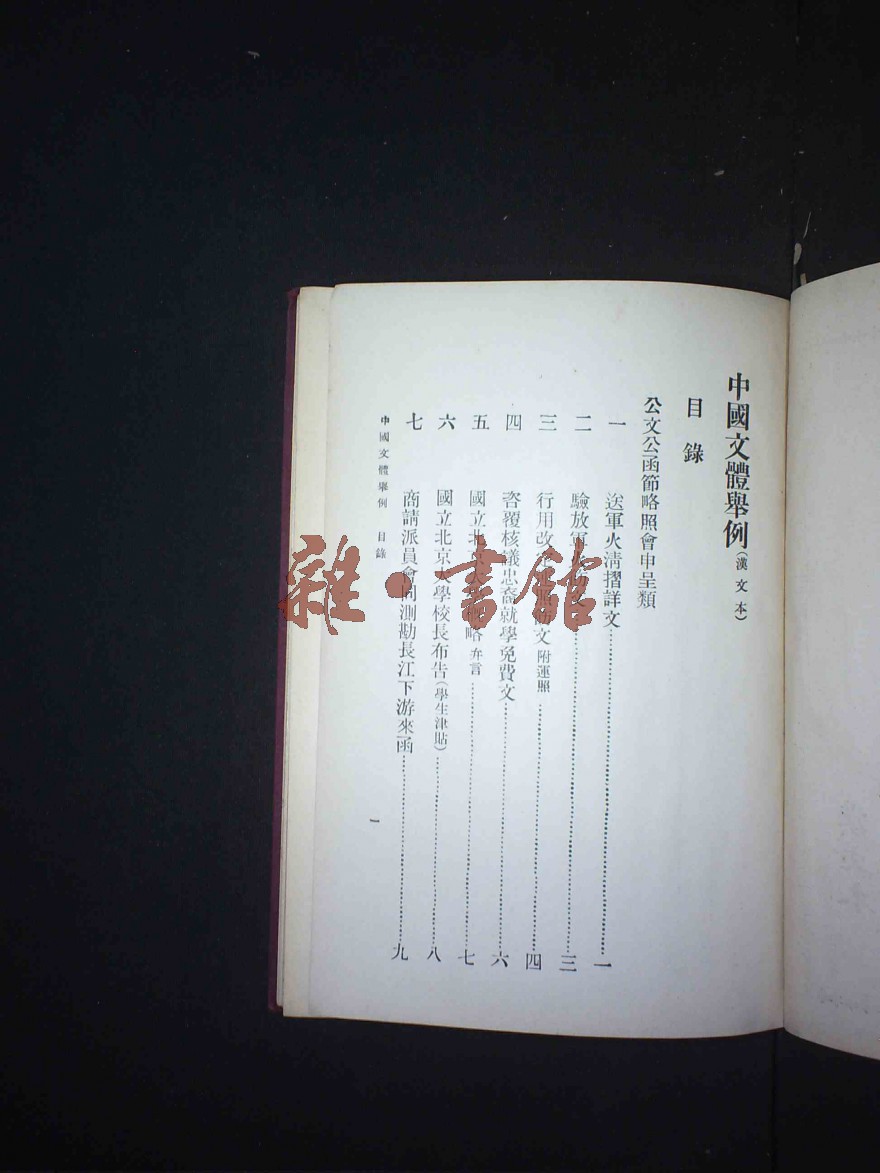 中國文體舉例(漢文本)
目錄
公文公函節略照會申呈類
一 送軍火清摺詳文 一
二 驗放軍 三
三 行用改 文 附運照 四
四 咨覆核議忠裔就學免費文 六
五 國立北 略 弁言 七
六 國立北京大學校長布告(學生津貼) 八
七 商請派員會同測勘長江下游來函 九
中國文體舉例 目錄
一
雜·書館